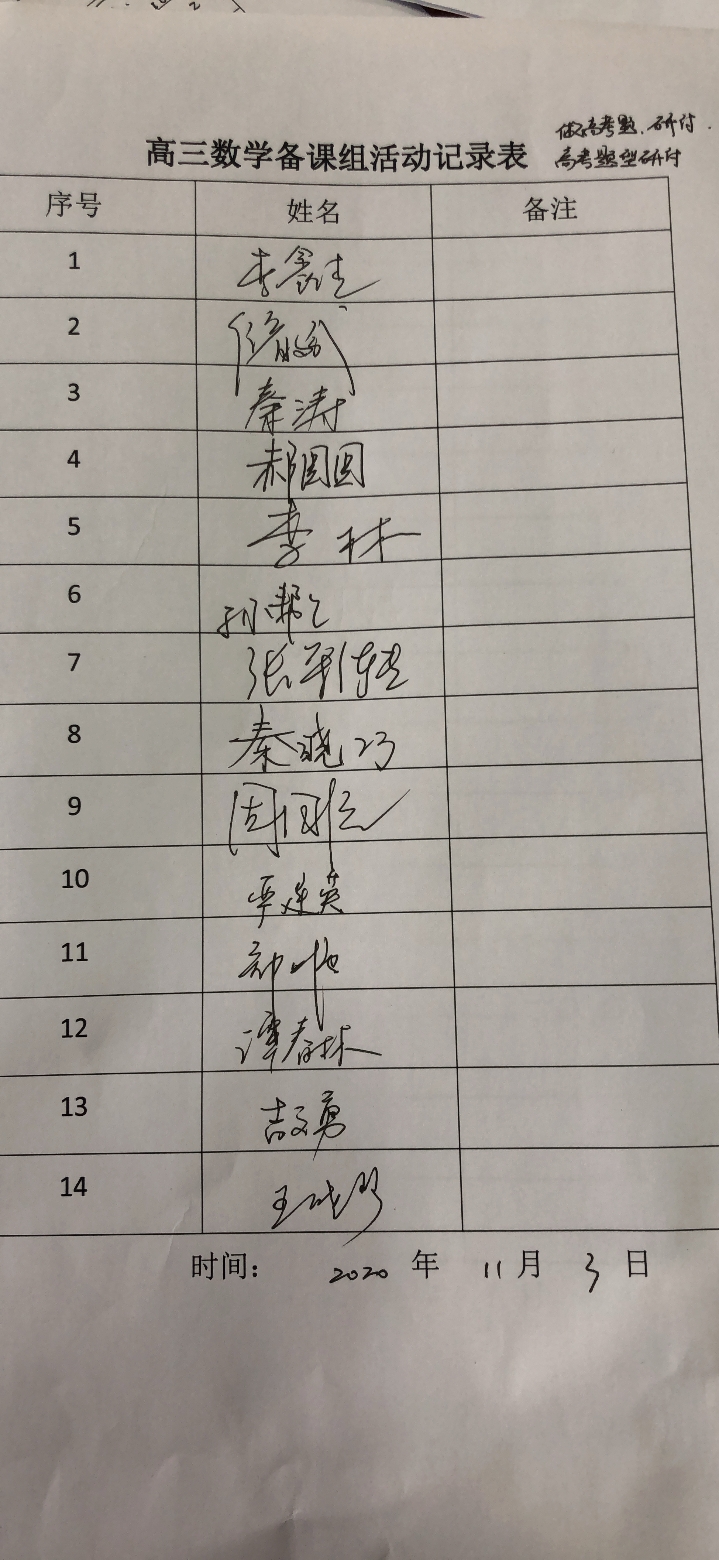 做高考题、研讨.
高三数学备课组活动记录表 高考题型研讨
序号 姓名 备注
1 李鑫佳
2
3 秦涛
4 郝圆圆
5 李林
6
7 张军伟
8 秦晓巧
9 周
10 覃廷英
11 郑
12 谭春林
13 吉文勇
14 王晓琴
时间: 2020 年 11 月 3 日